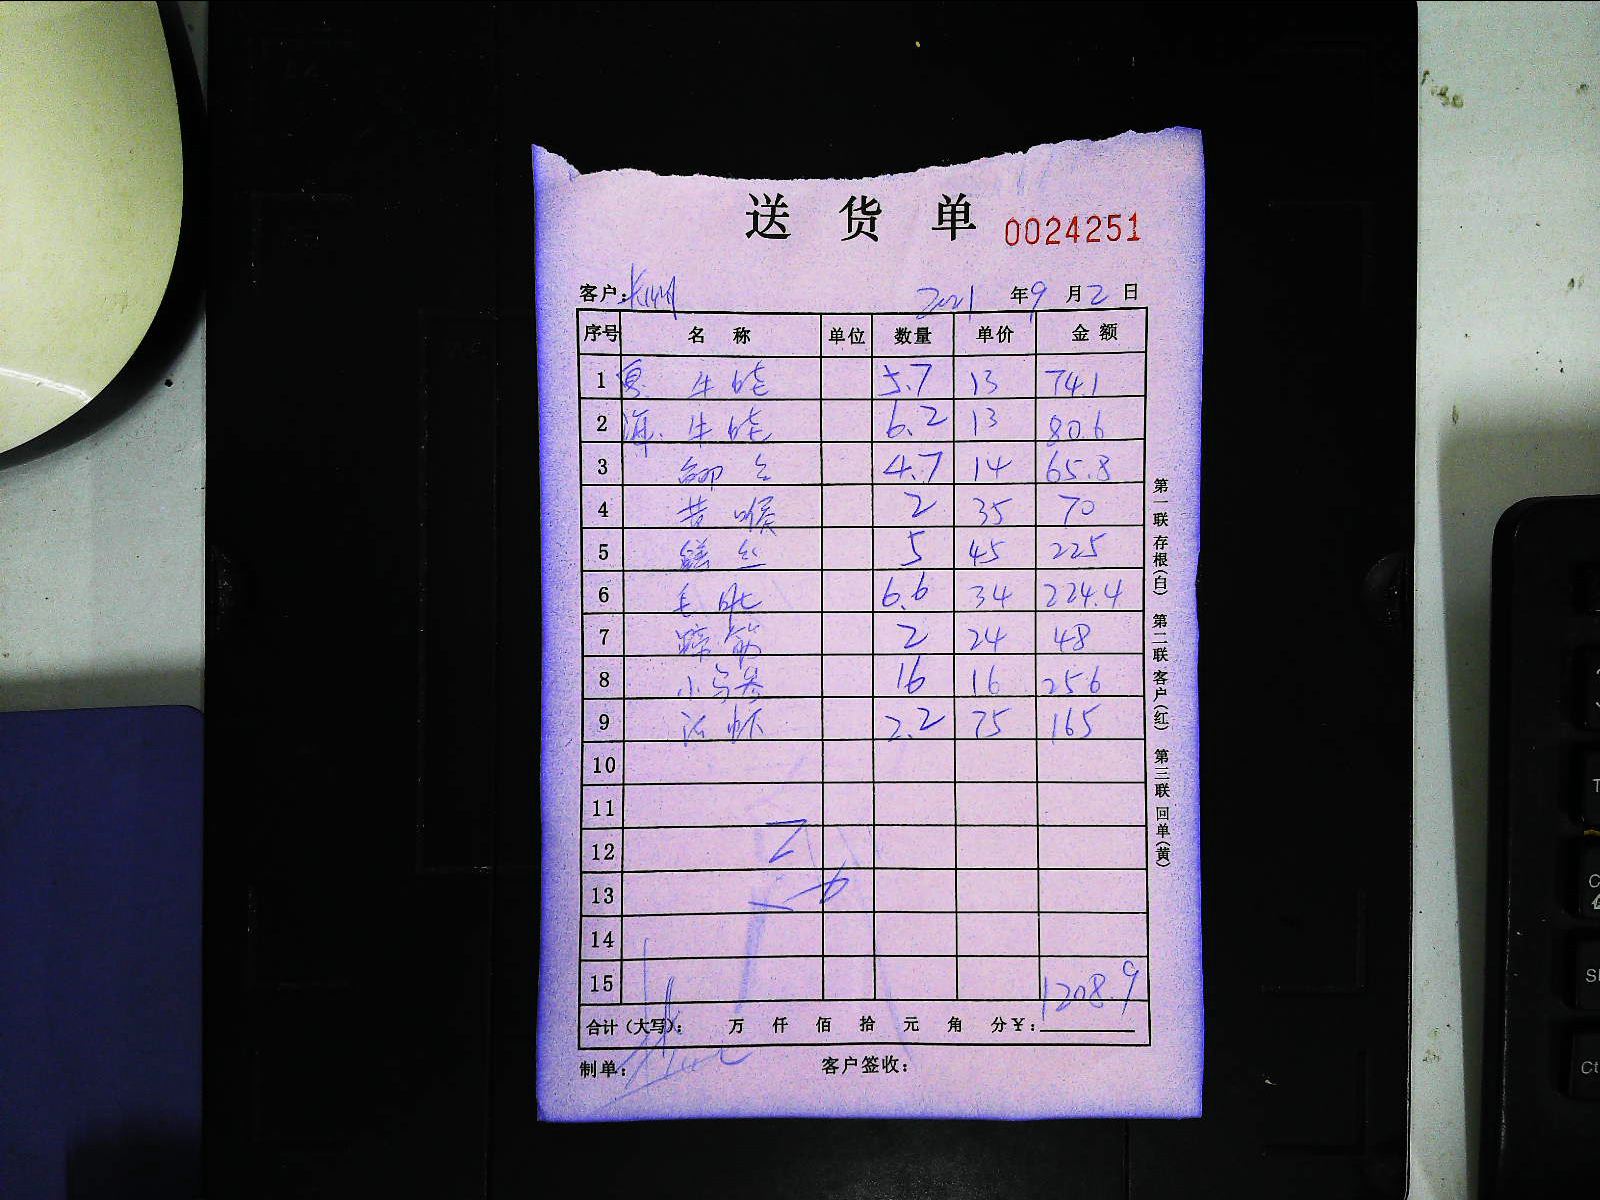 送货单 0024251
客户: 2021 年 9 月 2 日
序号 名称 单位 数量 单价 金额
1 牛蛙 5.7 13 74.1
2 牛蛙 6.2 13 80.6
3 4.7 14 65.8
4 黄喉 2 35 70
5 5 45 225
6 毛肚 6.6 34 224.4
7 蹄筋 2 24 48
8 16 16 256
9 活虾 2.2 75 165
10
11
12
13
14
15 1208.9
合计(大写): 万 仟 佰 拾 元 角 分 ¥:
制单: 客户签收:
第一联 存根(白) 第二联 客户(红) 第三联 回单(黄)